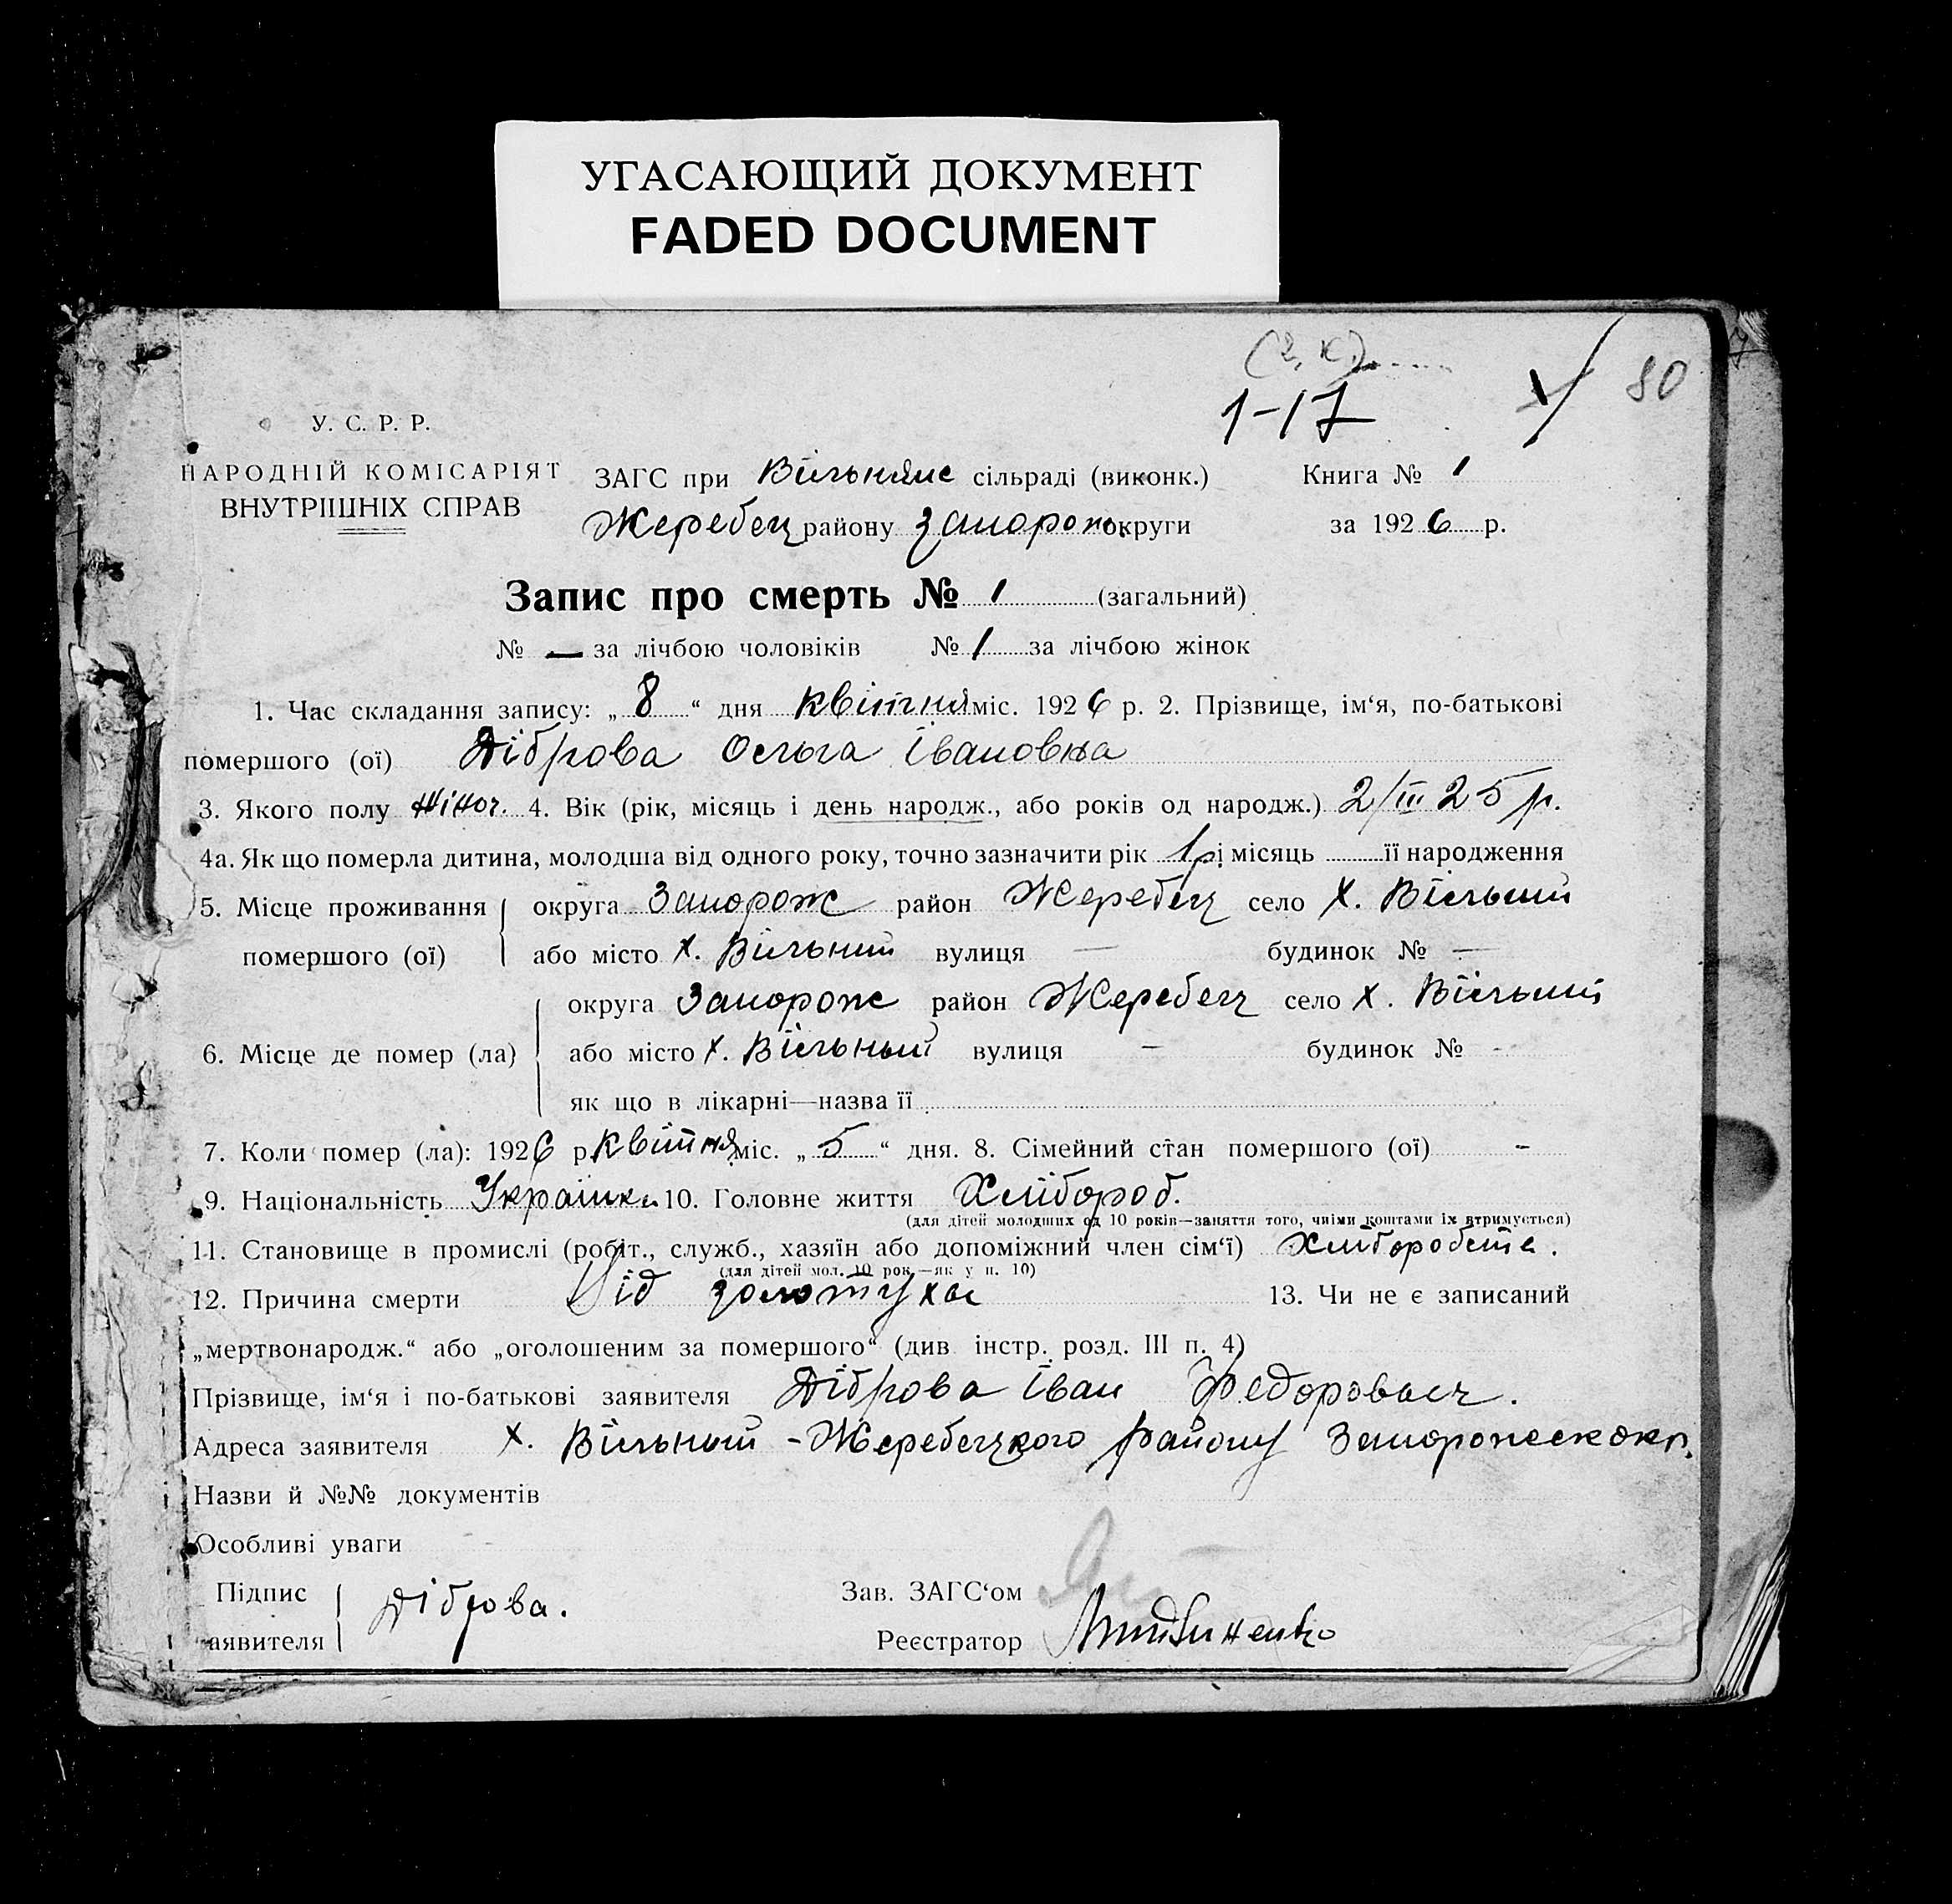 УГАСАЮЩИЙ ДОКУМЕНТ
FADED DOCUMENT
80
1-17
У. С. Р. Р.
НАРОДНІЙ КОМІСАРІЯТ
ВНУТРІШНІХ СПРАВ
ЗАГС при Вільнянс сільраді (виконк.) Книга № 1
Жеребец району Запорож округи за 1926 р.
Запис про смерть № 1 (загальний)
№ — за лічбою чоловіків № 1 за лічбою жінок
1. Час складання запису: „8“ дня квітня міс. 1926 р. 2. Прізвище, ім‘я, по-батькові
помершого (ої) Діброва Ольга Івановна
3. Якого полу жіноч. 4. Вік (рік, місяць і день народж., або років од народж.) 2/III 25 р.
4а. Як що померла дитина, молодша від одного року, точно зазначити рік 1 р і місяць її народження
5. Місце проживання округа Запорож район Жеребец село х. Вільний
помершого (ої) або місто х. Вільний вулиця — будинок № —
округа Запорож район Жеребец село х. Вільний
6. Місце де помер (ла) або місто х. Вільный вулиця - будинок № -
як що в лікарні—назва її
7. Коли помер (ла): 1926 р. квітня міс. „5“ дня. 8. Сімейний стан помершого (ої) -
9. Національність Українка 10. Головне життя Хлібороб.
(для дітей молодших од 10 років—заняття того, чиїми коштами їх втримується)
11. Становище в промислі (робіт., служб., хазяїн або допоміжний член сім‘ї)
(для дітей мол. 10 рок.—як у п. 10)
12. Причина смерти Від золотухи 13. Чи не є записаний
„мертвонародж.“ або „оголошеним за помершого“ (див інстр. розд. III п. 4)
Прізвище, ім‘я і по-батькові заявителя Діброва Іван Федорович.
Адреса заявителя х. Вільный - Жеребецкого району
Назви й №№ документів
Особливі уваги
Підпис Діброва. Зав. ЗАГС‘ом
заявителя Реєстратор